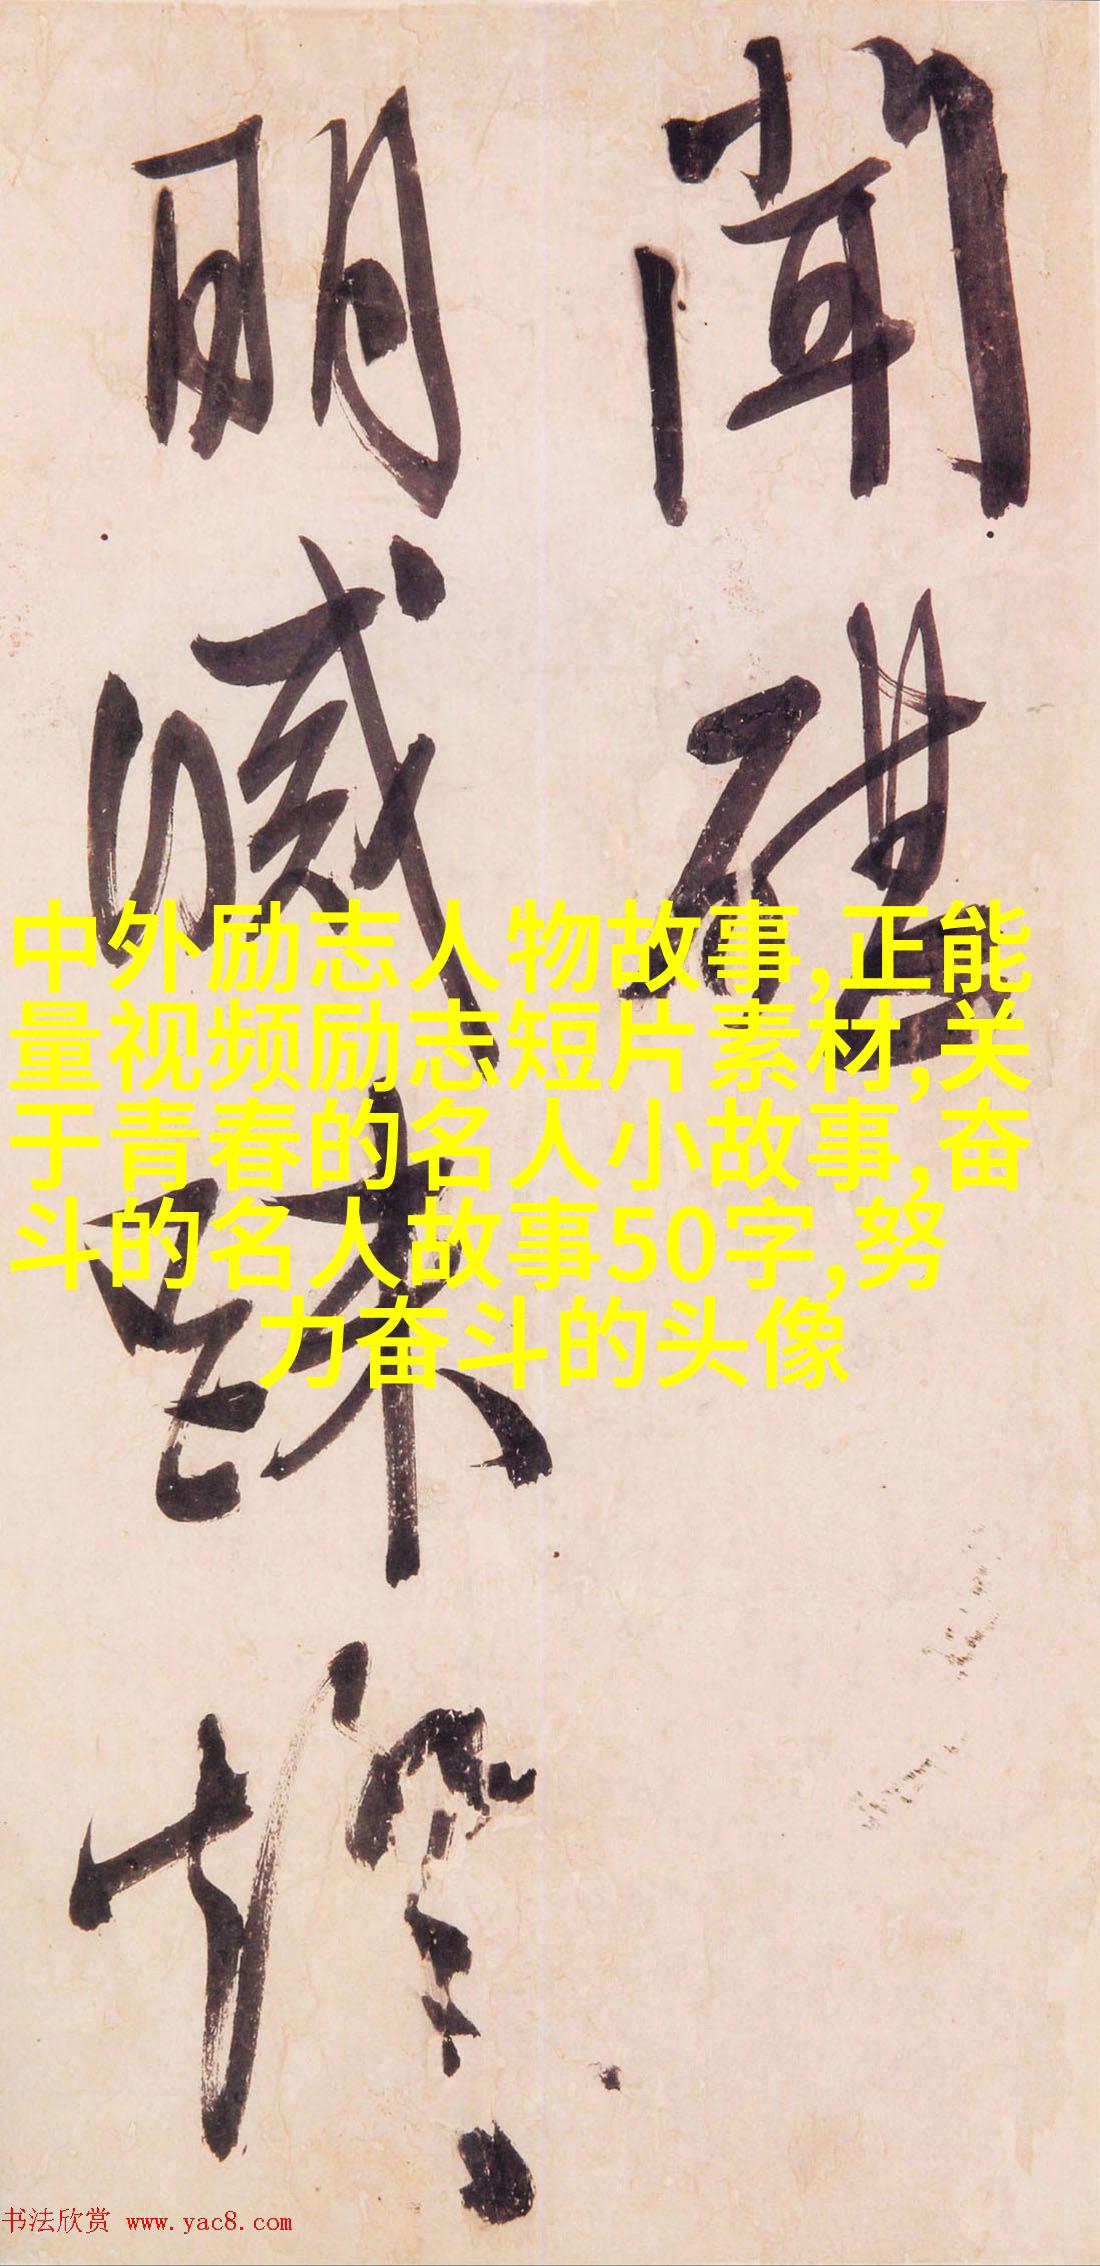 聞碪
明滅踈燈
中外励志人物故事,正能
量视频励志短片素材,关
于青春的名人小故事,奋
斗的名人故事50字,努
力奋斗的头像
书法欣赏 www.yac8.com